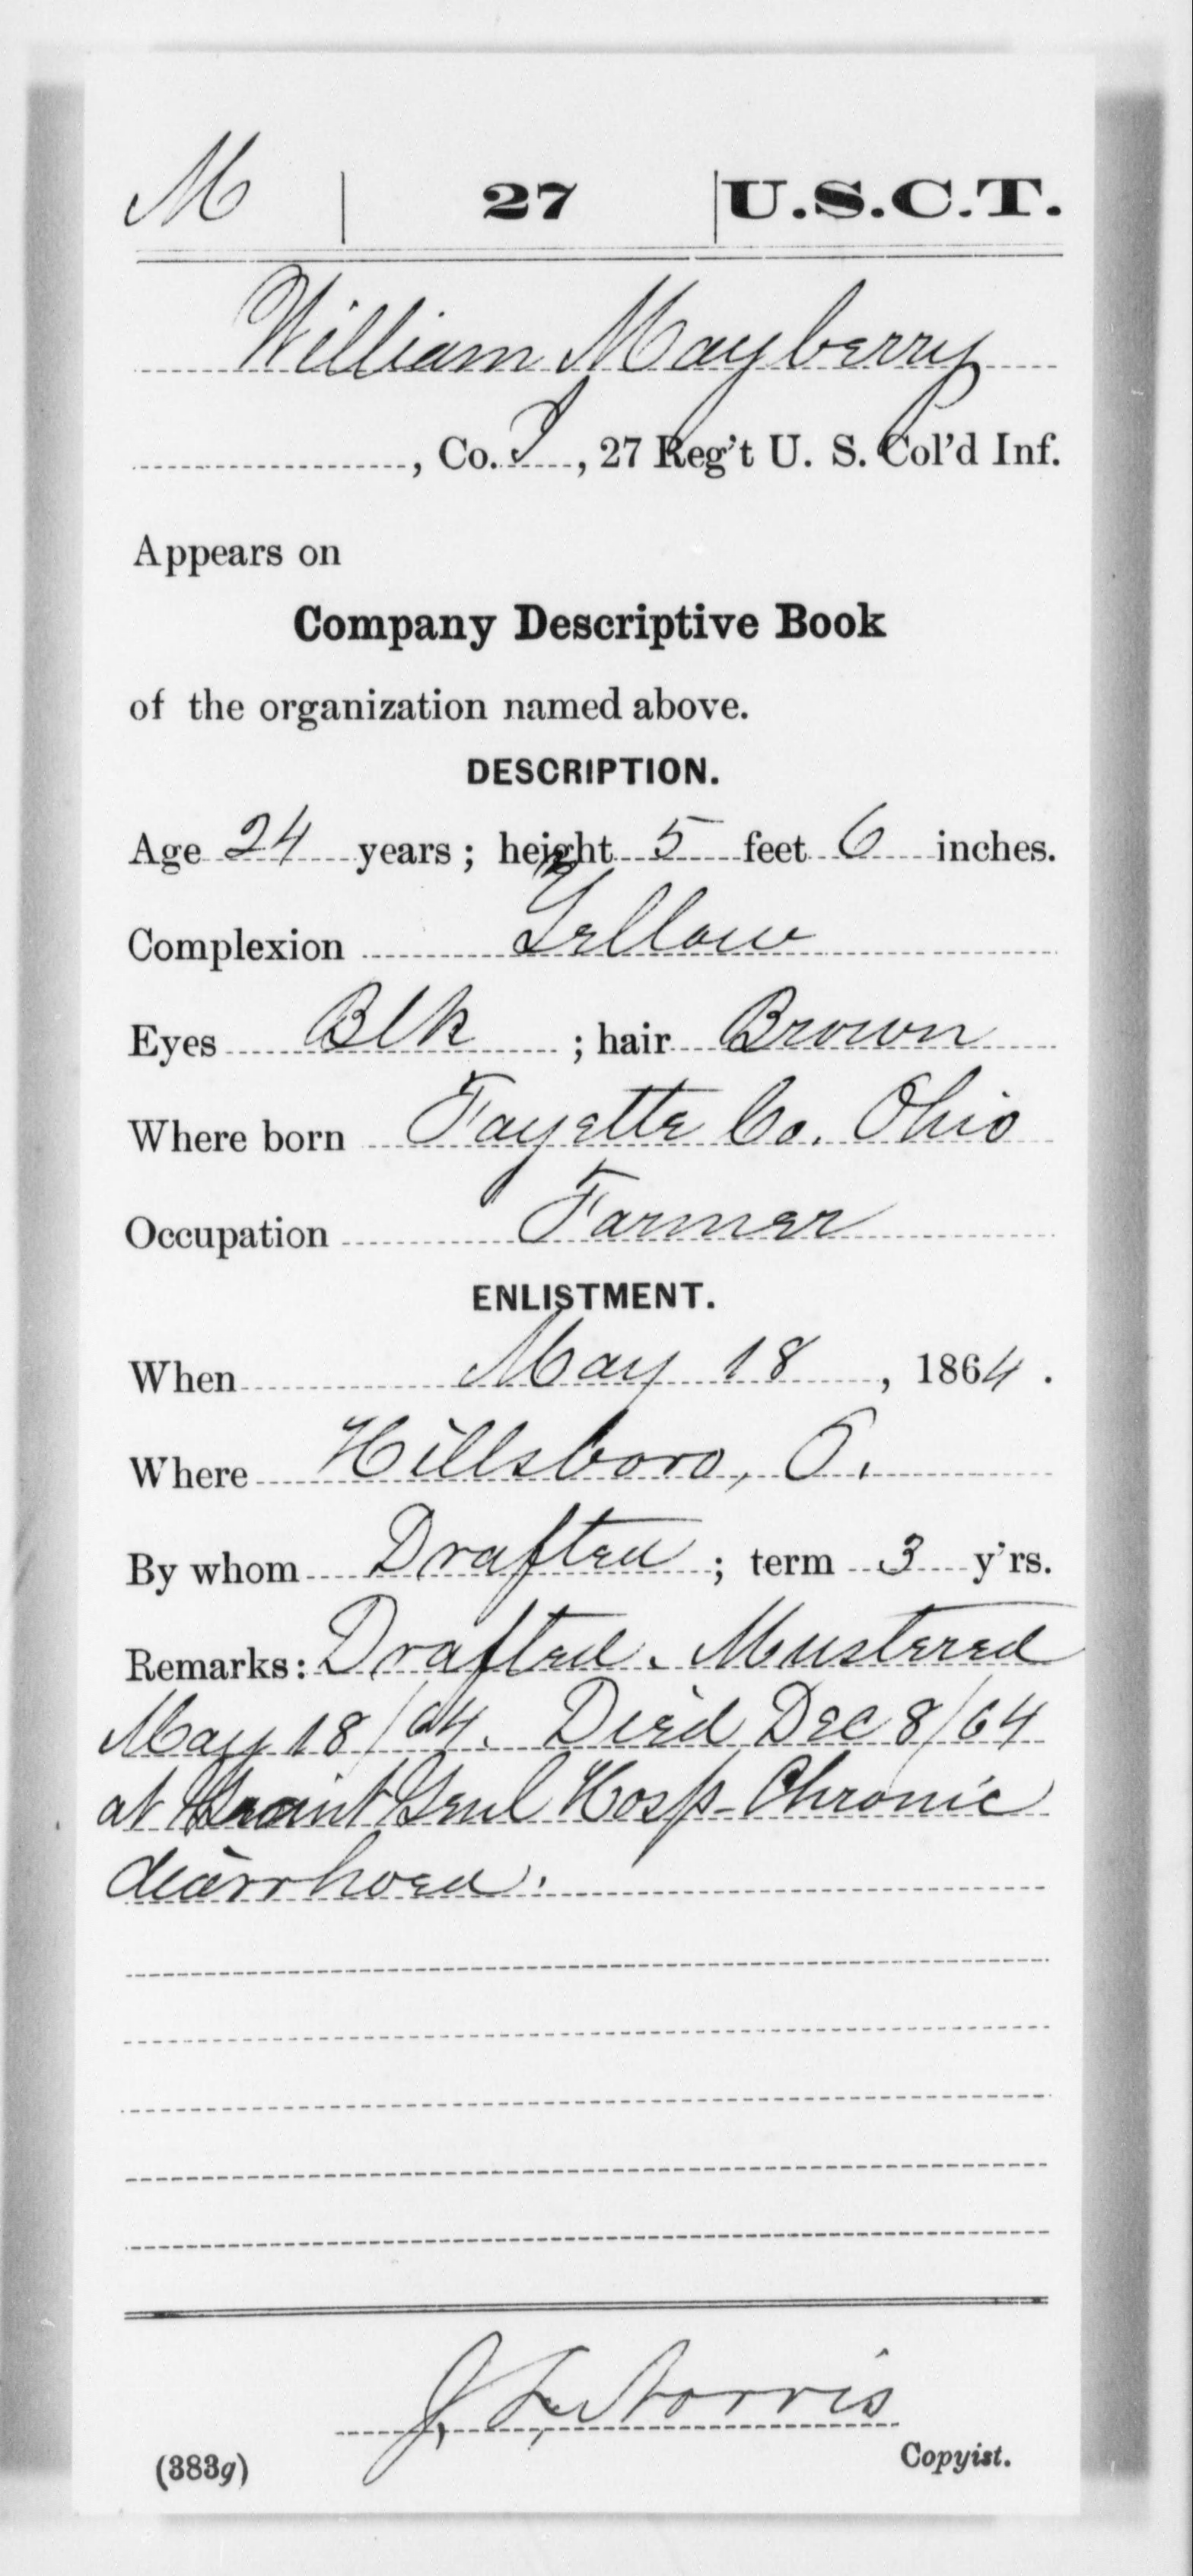 M 27 U.S.C.T.
William Mayberry
, Co. I, 27 Reg't U. S. Col'd Inf.
Appears on
Company Descriptive Book
of the organization named above.
DESCRIPTION.
Age 24 years; height 5 feet 6 inches.
Complexion Yellow
Eyes Blk ; hair Brown
Where born Fayette Co. Ohio
Occupation Farmer
ENLISTMENT.
When May 18, 1864.
Where Hillsboro, O.
By whom Drafted; term 3 y'rs.
Remarks: Drafted. Mustered
May 18/64. Died Dec 8/64
at Grant Genl Hosp. Chronic
diarrhoea.
Norris
(383g) Copyist.